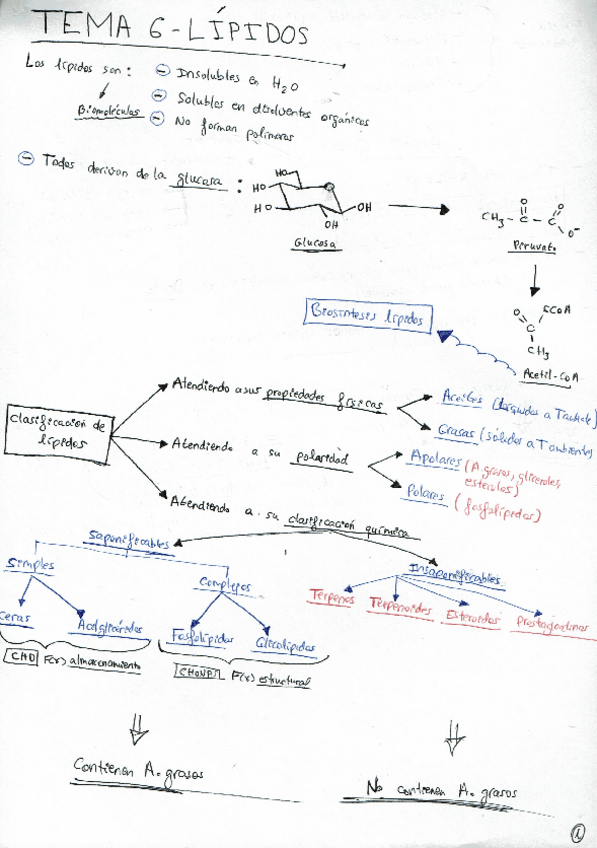 TEMA 6-LÍPIDOS
Los lípidos son: ⊖ Insolubles en H2O
Biomoléculas ⊖ Solubles en disolventes orgánicos
⊖ No forman polímeros
⊖ Todos derivan de la glucosa:
HO
HO
HO
OH
OH
Glucosa
CH3-C-C
O
O
O-
Piruvato
O
SCoA
C
CH3
Acetil-CoA
Biosíntesis lípidos
Clasificación de
lípidos
Atendiendo a sus propiedades físicas
Aceites (líquidos a Tambiente)
Grasas (sólidos a Tambiente)
Atendiendo a su polaridad
Apolares (A.grasos, gliceroles,
esteroles)
Polares (fosfolípidos)
Atendiendo a su clasificación química
Saponificables
Simples
Complejos
Ceras
Acilglicéridos
Fosfolípidos
Glicolípidos
CHO F(x) almacenamiento
CHONP F(x) estructural
Insaponificables
Terpenos
Terpenoides
Esteroides
Prostaglandinas
Contienen A. grasos
No contienen A. grasos
1